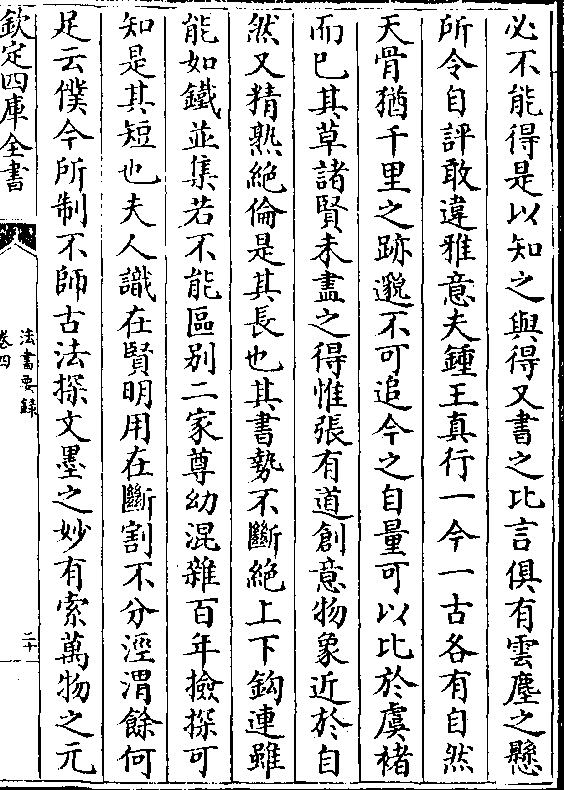 必不能得是以知之與得又書之比言俱有雲塵之懸
所令自評敢違雅意夫鍾王真行一今一古各有自然
天骨猶千里之跡邈不可追今之自量可以比於虞褚
而已其草諸賢未盡之得惟張有道創意物象近於自
然又精熟絕倫是其長也其書勢不斷絕上下鈎連雖
能如鐵並集若不能區别二家尊幼混雜百年撿探可
知是其短也夫人識在賢明用在斷割不分涇渭餘何
足云僕今所制不師古法探文墨之妙有索萬物之元
欽定四庫全書
法書要錄
卷四
二十